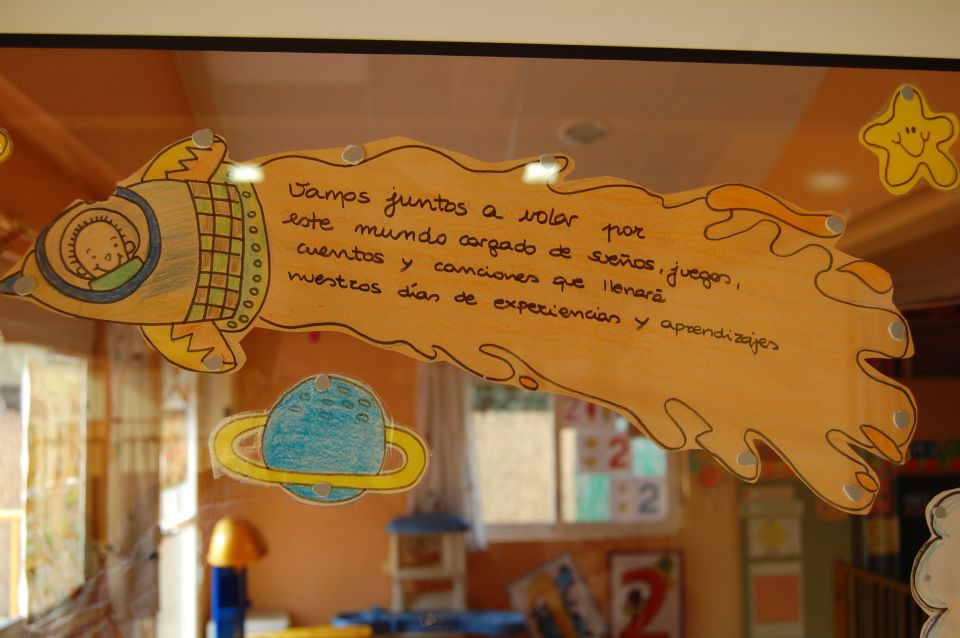 Vamos juntos a volar por
este mundo cargado de sueños, juegos,
cuentos y canciones que llenará
nuestros días de experiencias y aprendizajes
2
2
2